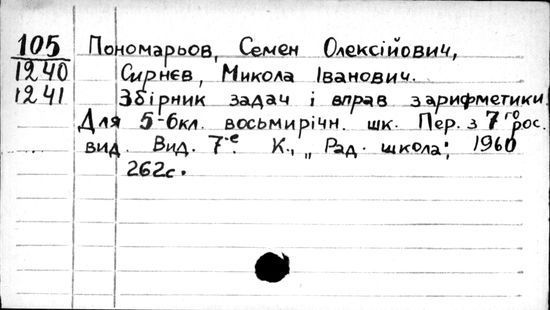 105 Пономарьов, Семен Олексійович,
1240 Сирнєв, Микола Іванович.
1241 Збірник задач і вправ з арифметики
Для 5-6кл. восьмирічн. шк. Пер. з 7го рос.
вид. Вид. 7-е. К., „Рад. школа", 1960
262с.